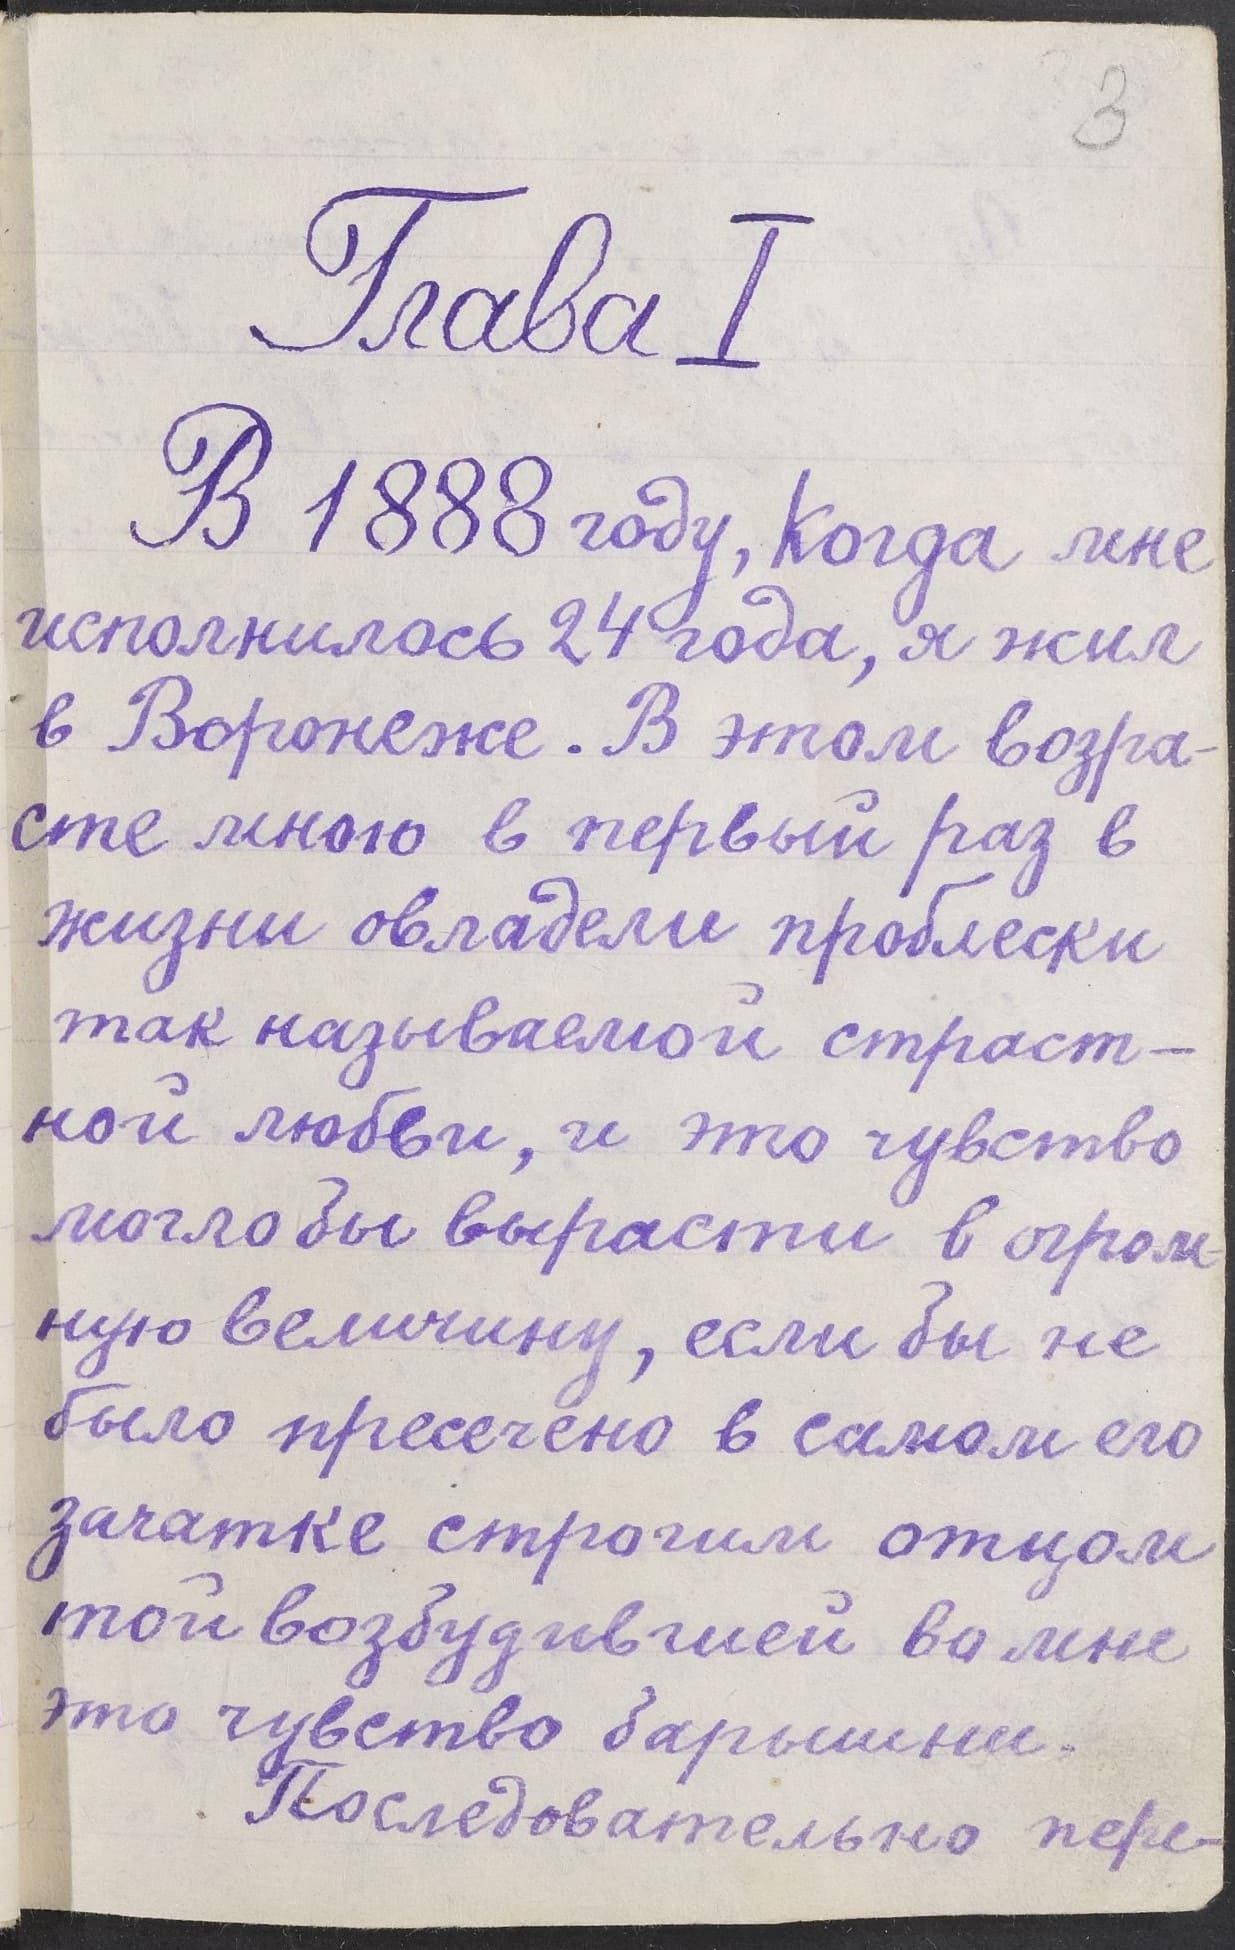 3
Глава I
В 1888 году, когда мне
исполнилось 24 года, я жил
в Воронеже. В этом возра-
сте мною в первый раз в
жизни овладели проблески
так называемой страст-
ной любви, и это чувство
могло бы вырасти в огром-
ную величину, если бы не
было пресечено в самом его
зачатке строгим отцом
той возбудившей во мне
это чувство барышни.
Последовательно пере-